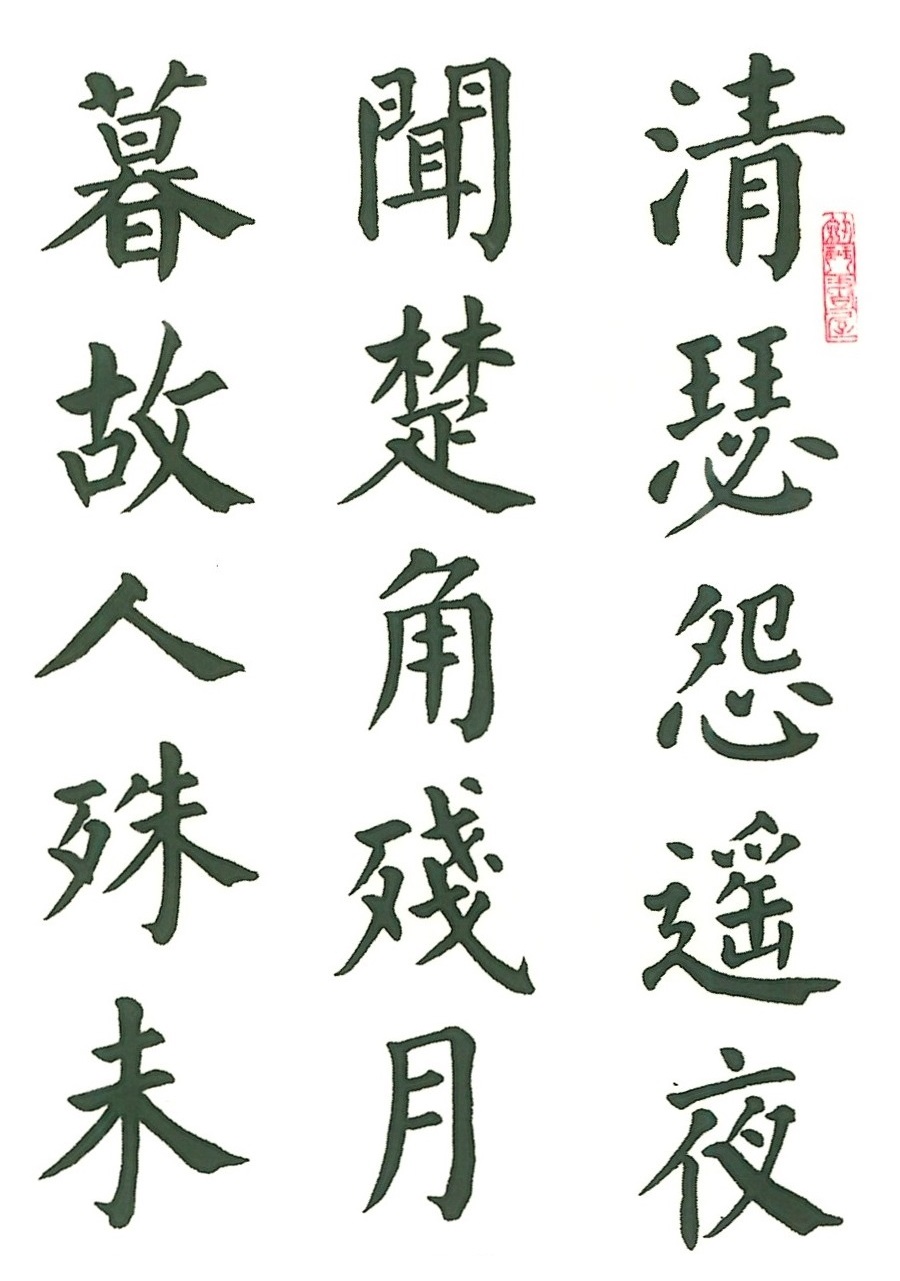 清瑟怨遥夜
聞楚角殘月
暮故人殊未